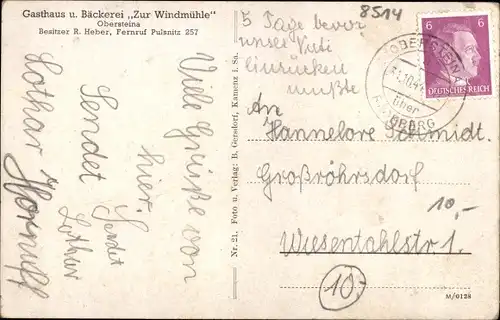 Gasthaus u. Bäckerei „Zur Windmühle"
Obersteina
Besitzer R. Heber, Fernruf Pulsnitz 257
Viele Grüße von
hier.
Sendet
Lothar
Sendet
Lothar
Hornuff
Nr. 21, Foto u. Verlag: B. Gersdorf, Kamenz i. Sa.
5 Tage bevor
unser Vati
einrücken
mußte
8514
6 6
DEUTSCHES REICH
OBERSTEINA
über
An
Hannelore Schmidt.
Großröhrsdorf
10,-
Wiesentahlstr 1.
10.-
M/0128